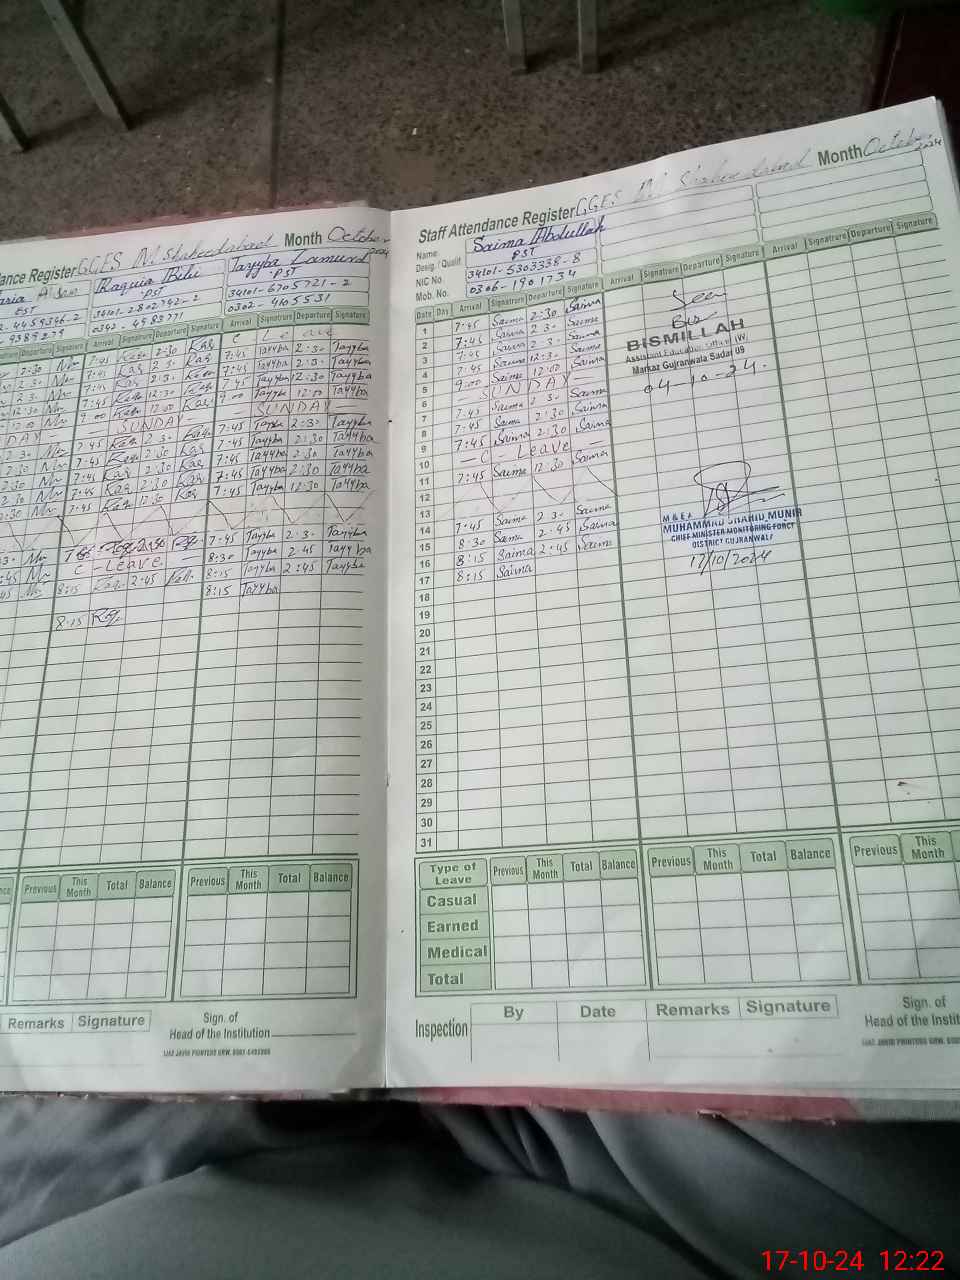 nce Register GGES M. Shaheedabad Month October 2024
Raquia Bibi Tayyba
EST PST PST
34101-2802742-2 34101-6705721-2
0342-4983771 0302-4105531
Departure Signature Arrival Signature Departure Signature Arrival Signature Departure Signature
C Leave
7:45 2:30 7:45 Tayyba 2:30 Tayyba
7:45 2:30 7:45 Tayyba 2:30 Tayyba
7:45 12:30 7:45 Tayyba 12:30 Tayyba
9:00 12:00 9:00 Tayyba 12:00 Tayyba
SUNDAY SUNDAY
7:45 2:30 7:45 Tayyba 2:30 Tayyba
7:45 2:30 7:45 Tayyba 2:30 Tayyba
7:45 2:30 7:45 Tayyba 2:30 Tayyba
7:45 12:30 7:45 Tayyba 12:30 Tayyba
7:45 Tayyba 2:30 Tayyba
C - Leave 8:30 Tayyba 2:45 Tayyba
8:15 2:45 8:15 Tayyba 2:45 Tayyba
8:15 8:15 Tayyba
Previous This Month Total Balance Previous This Month Total Balance
Remarks Signature
Sign. of
Head of the Institution
Staff Attendance Register GGES M. Shaheedabad Month October 2024
Name Saima Abdullah
Desig. / Qualif. PST
NIC No. 34101-5303338-8
Mob. No. 0306-1901734
Date Day Arrival Signature Departure Signature Arrival Signatrure Departure Signature Arrival Signatrure Departure Signature
1 7:45 Saima 2:30 Saima
2 7:45 Saima 2:30 Saima
3 7:45 Saima 12:30 Saima
4 9:00 Saima 12:00 Saima
5 - SUNDAY -
6 7:45 Saima 2:30 Saima
7 7:45 Saima 2:30 Saima
8 7:45 Saima 2:30 Saima
9 - C - Leave -
10 7:45 Saima 12:30 Saima
11
12
13 7:45 Saima 2:30 Saima
14 8:30 Saima 2:45 Saima
15 8:15 Saima 2:45 Saima
16 8:15 Saima
17
18
19
20
21
22
23
24
25
26
27
28
29
30
31
Seen
BISMILLAH
Assistant Education Officer (W)
Markaz Gujranwala Sadar 09
04-10-24.
M & E A
MUHAMMAD SHAHID MUNIR
CHIEF MINISTER MONITORING FORCE
DISTRICT GUJRANWALA
17/10/2024
Type of Leave Previous This Month Total Balance Previous This Month Total Balance Previous This Month
Casual
Earned
Medical
Total
Inspection By Date Remarks Signature
Sign. of
Head of the Institu
17-10-24 12:22